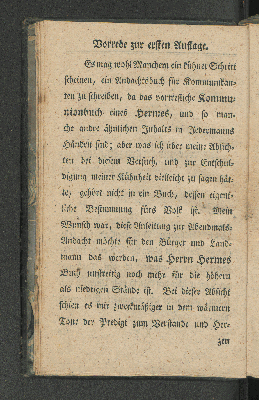 Vorrede zur ersten Auflage.
Es mag wohl Manchem ein kühner Schritt
scheinen, ein Andachtsbuch für Kommunikan-
ten zu schreiben, da das vortrefliche Kommu-
nionbuch eines Hermes, und so man-
che andre ähnlichen Inhalts in Jedermanns
Händen sind; aber was ich über meine Absich-
ten bei diesem Versuch, und zur Entschul-
digung meiner Kühnheit vielleicht zu sagen hät-
te, gehört nicht in ein Buch, dessen eigent-
liche Bestimmung fürs Volk ist. Mein
Wunsch war, diese Anleitung zur Abendmals-
Andacht möchte für den Bürger und Land-
mann das werden, was Herrn Hermes
Buch unstreitig noch mehr für die höhern
als niedrigen Stände ist. Bei dieser Absicht
schien es mir zweckmäßiger in dem wärmern
Tone der Predigt zum Verstande und Her-
zen